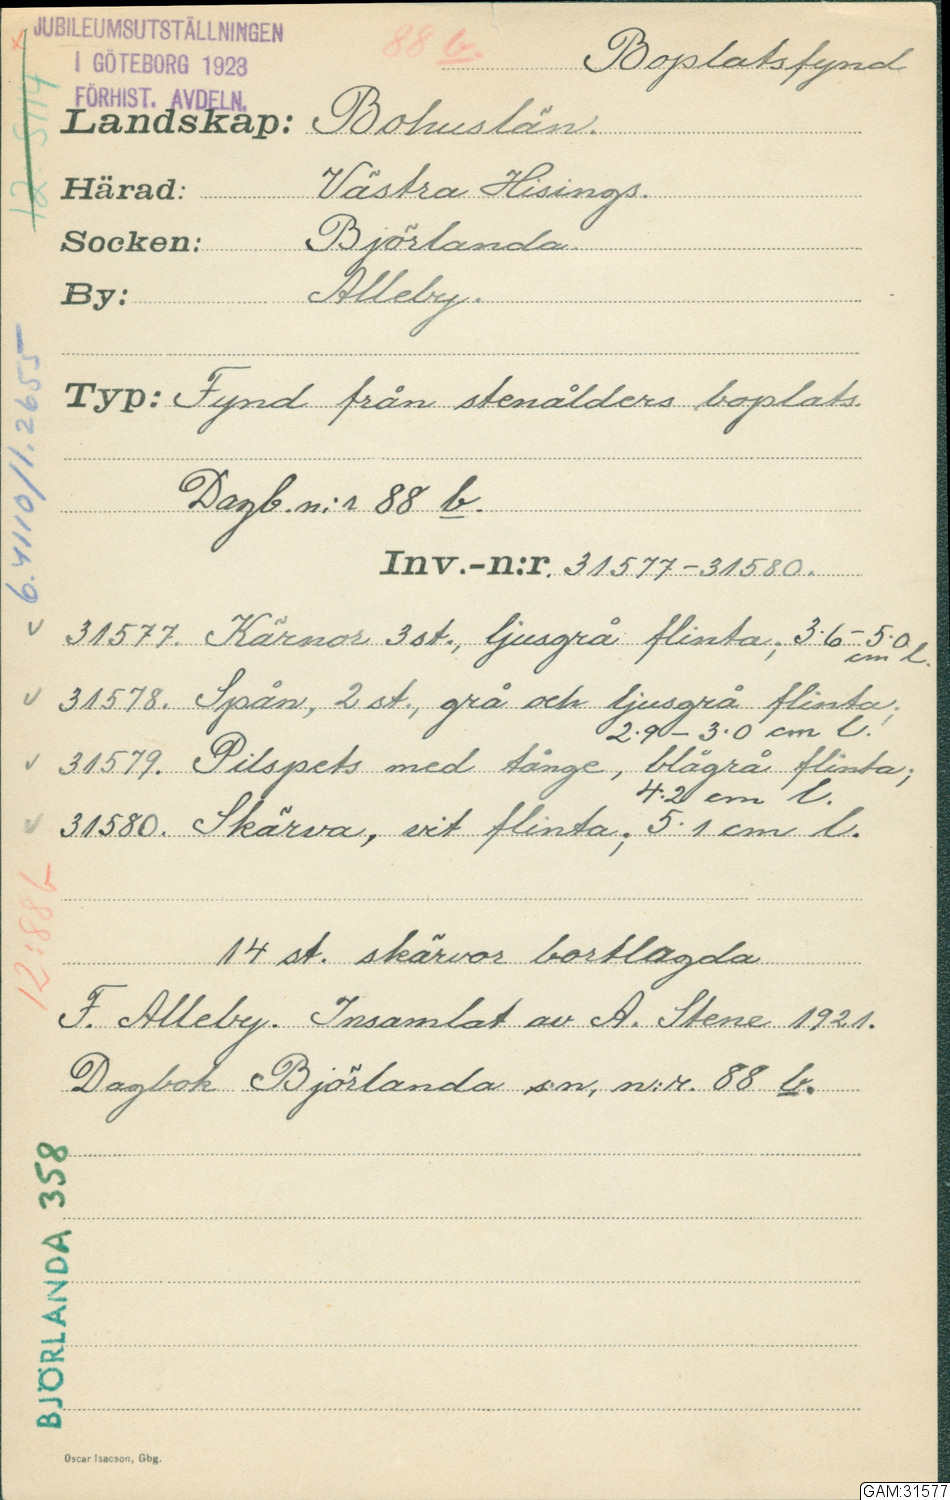 JUBILEUMSUTSTÄLLNINGEN
I GÖTEBORG 1923
FÖRHIST. AVDELN.
88 b.
Boplatsfynd
Landskap: Bohuslän.
Härad: Västra Hisings.
Socken: Björlanda.
By: Alleby.
Typ: Fynd från stenålders boplats.
Dagb. n:r 88 b.
Inv.-n:r. 31577-31580.
31577. Kärnor 3 st., ljusgrå flinta; 3.6-5.0
cm l.
31578. Spån, 2 st., grå och ljusgrå flinta;
2.9 - 3.0 cm l.
31579. Pilspets med tånge, blågrå flinta;
4.2 cm l.
31580. Skärva, vit flinta; 5.1 cm l.
14 st. skärvor bortlagda
F. Alleby. Insamlat av A. Stene 1921.
Dagbok Björlanda sn, n:r. 88 b.
12:88b
BJÖRLANDA 358
Oscar Isacson, Gbg.
GAM:31577